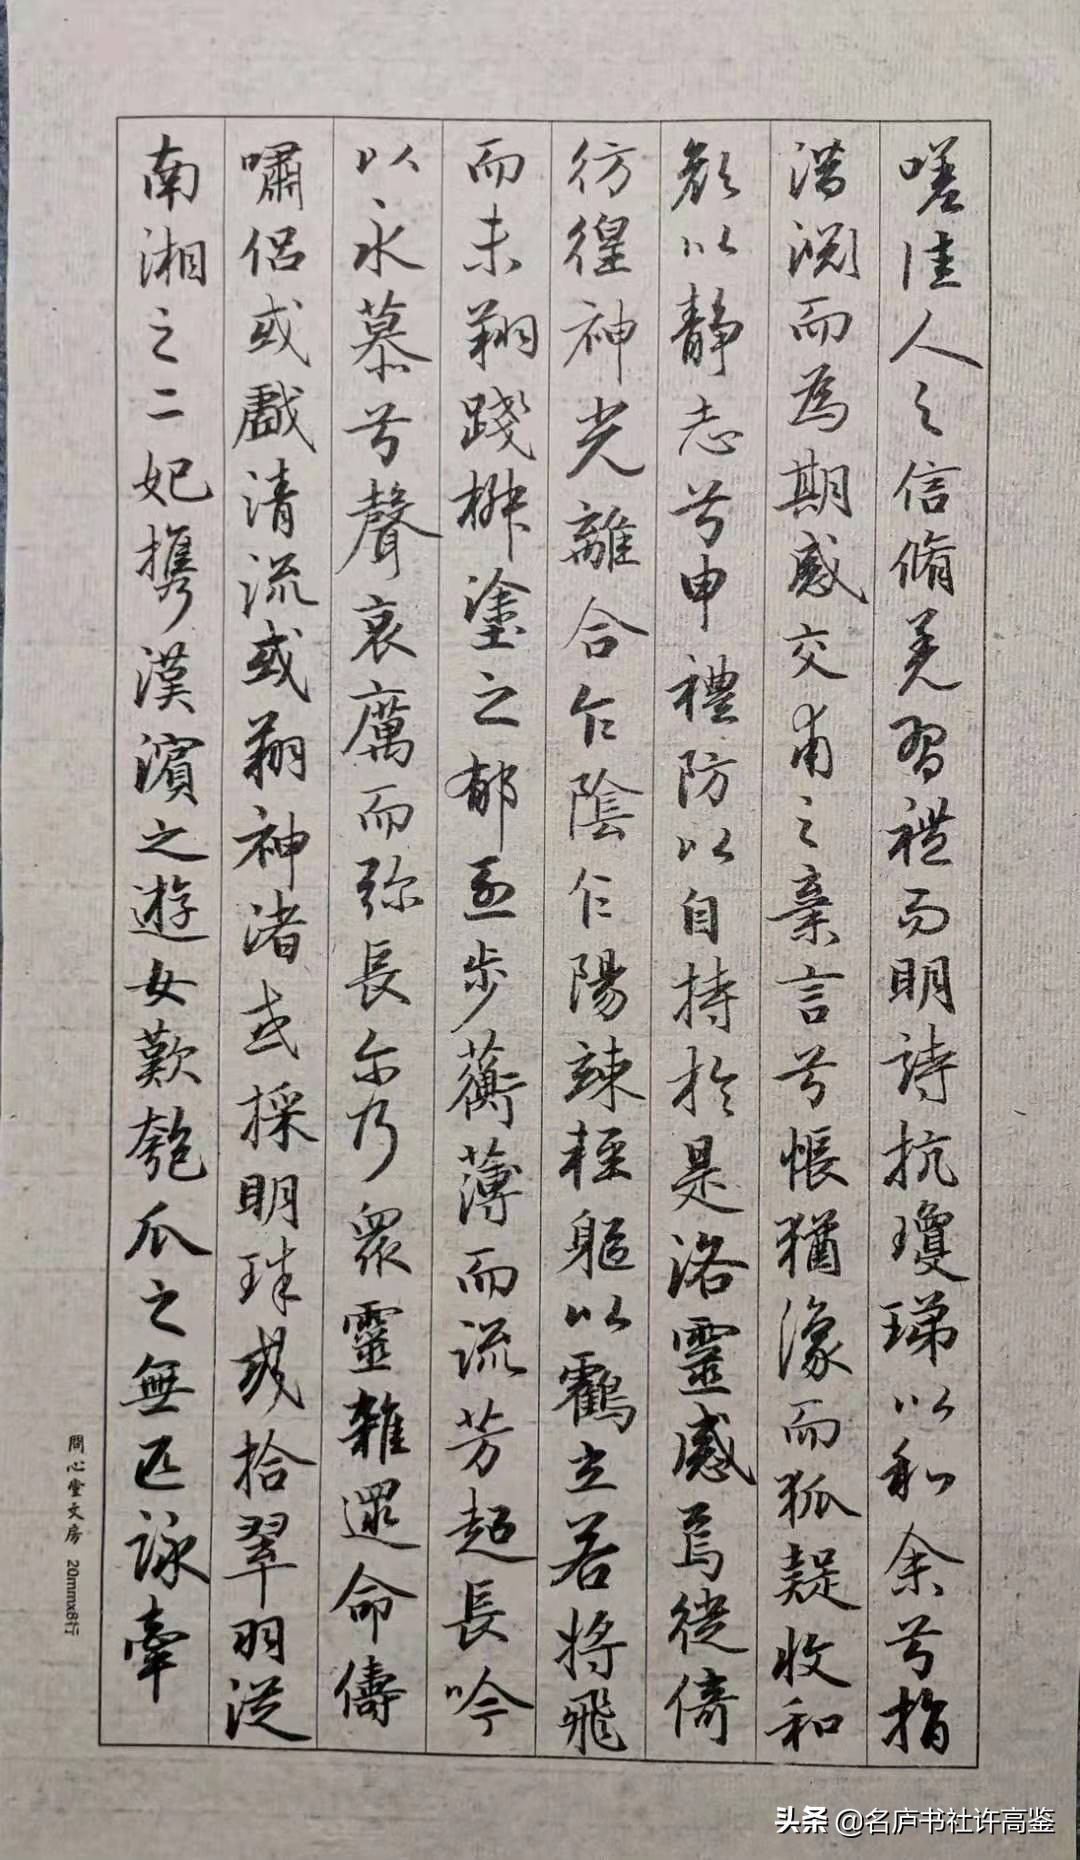 嗟佳人之信脩羌習禮而明詩抗瓊珶以和余兮指
潛淵而為期感交甫之棄言兮悵猶豫而狐疑收和
顏以靜志兮申禮防以自持於是洛靈感焉徙倚
彷徨神光離合乍陰乍陽竦輕軀以鶴立若將飛
而未翔踐椒塗之郁烈步蘅薄而流芳超長吟
以永慕兮聲哀厲而弥長尔乃眾靈雜遝命儔
嘯侶或戲清流或翔神渚或採明珠或拾翠羽從
南湘之二妃攜漢濱之遊女歎匏瓜之無匹詠牽
問心堂文房 20mmx8行
头条 @名庐书社许高鉴